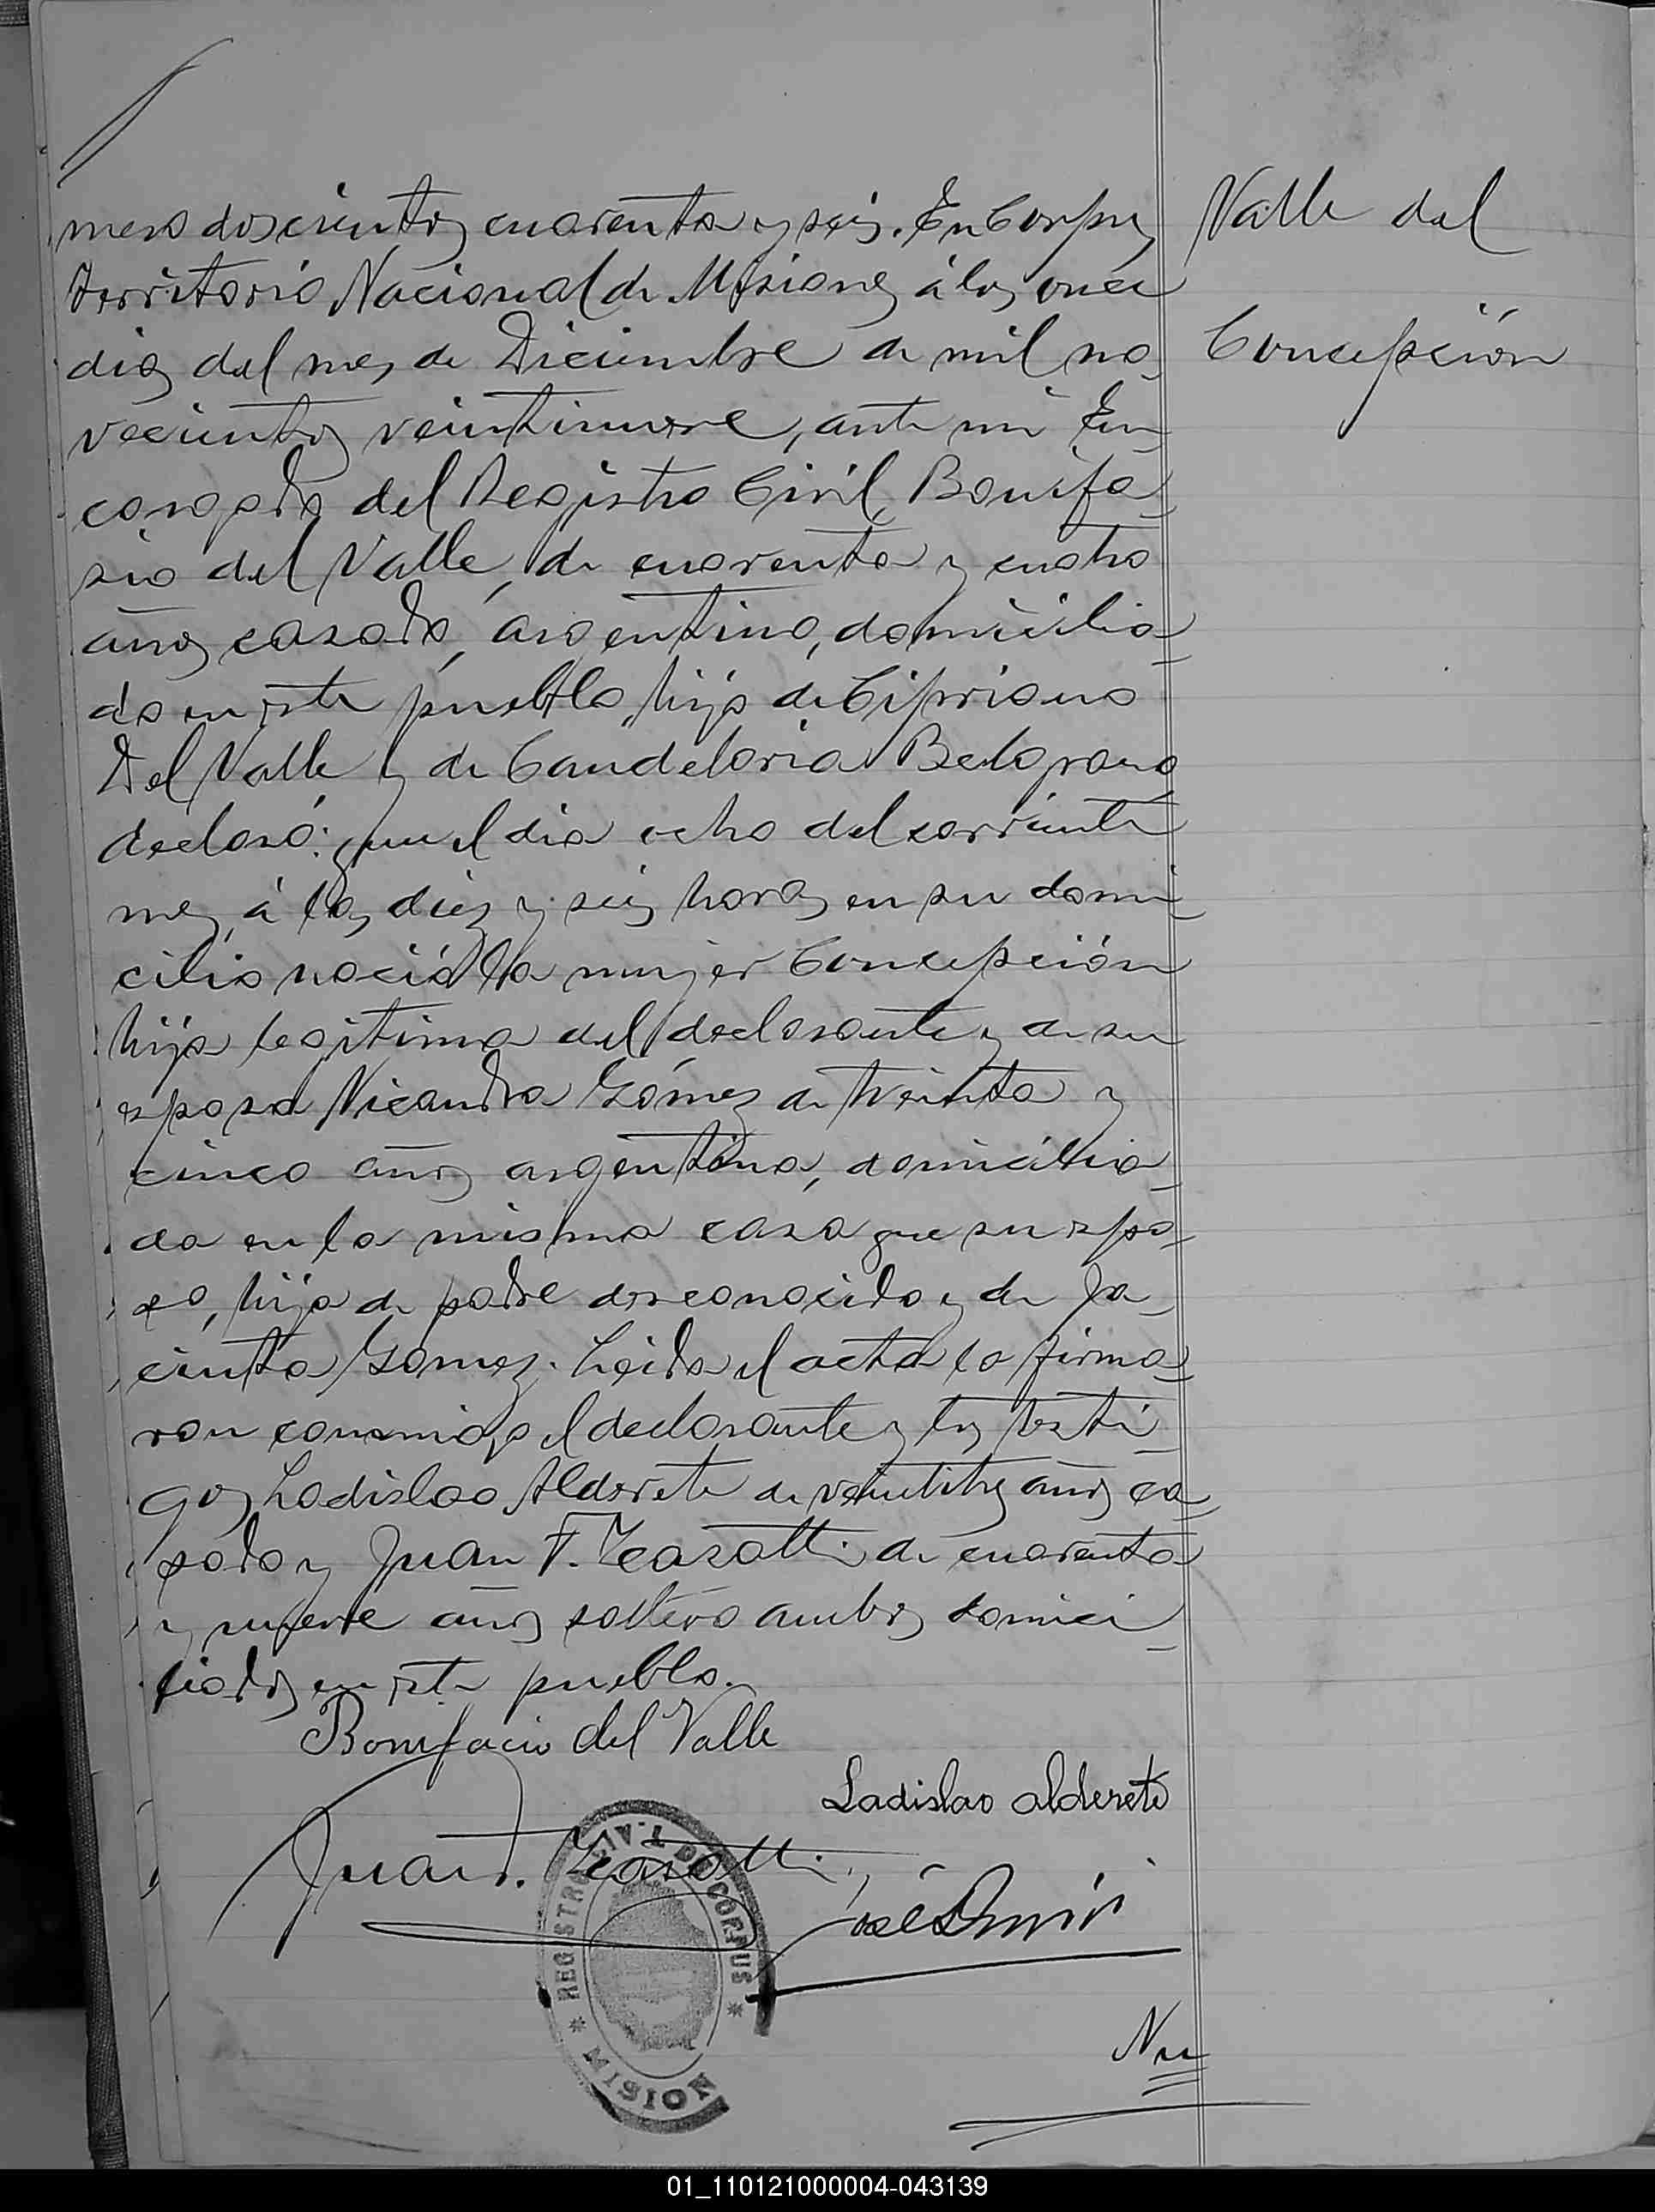 mero doscientos cuarenta y seis. En Corpus
Territorio Nacional de Misiones á los once
dias del mes de Diciembre de mil no-
vecientos veintinueve, ante mi En-
cargado del Registro Civil, Bonifa-
sio del Valle, de cuarenta y cuatro
años, casado, argentino, domicilia-
do en este pueblo, hijo de Cipriano
Del Valle y de Candelaria Belgrano
declaró: que el dia ocho del corriente
mes, á las diez y seis horas en su domi-
cilio nació la mujer Concepción
hija legitima del declarante y de su
esposa Nicandra Gómez de treinta y
cinco años argentina, domicilia-
da en la misma casa que su espo-
so, hija de padre desconocido y de Ja-
cinta Gomez. Leida el acta la firma-
ron conmigo el declarante y los testi-
gos Ladislao Alderete de veintitres años ca-
sado y Juan F. de cuarenta
y nueve años soltero ambos domici-
liados en este pueblo.
Bonifacio del Valle
Ladislao alderete
Juan F.
José
REGISTRO CIVIL DE CORPUS
* MISION *
Nu
Valle del
Concepción
01_110121000004-043139